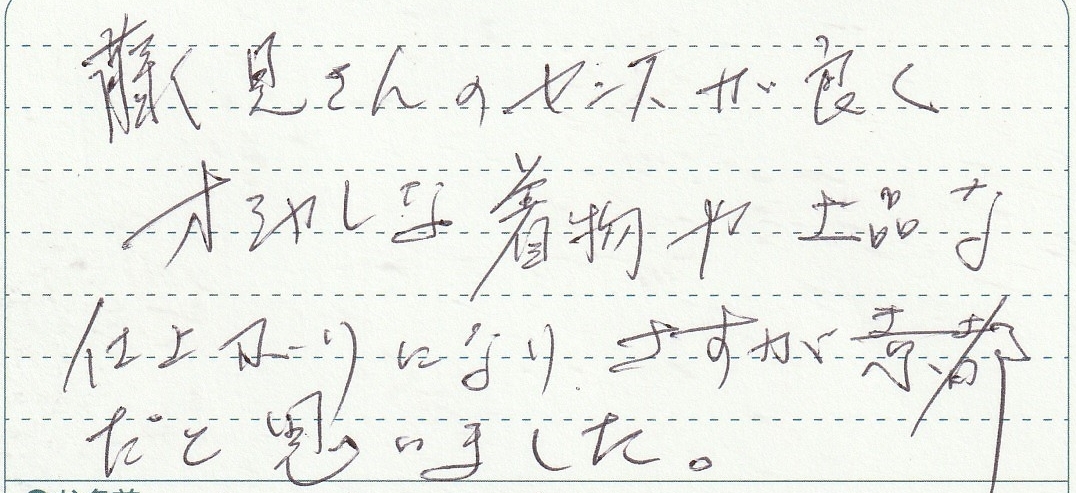 見さんのセンスが良く
オシャレな着物や上品な
仕上がりになり さすが京都
だと思いました。